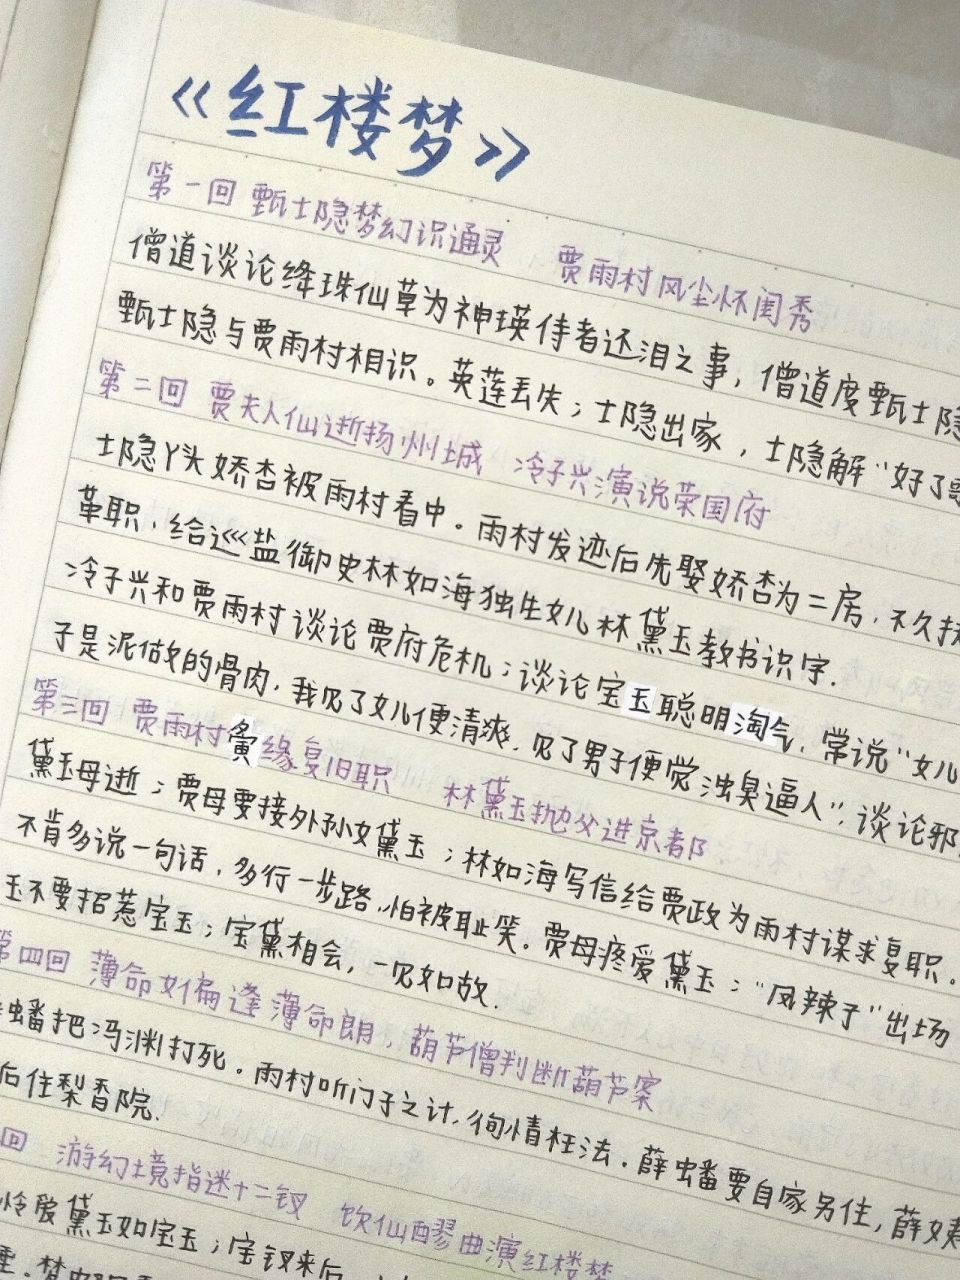 《红楼梦》
第一回 甄士隐梦幻识通灵 贾雨村风尘怀闺秀
僧道谈论绛珠仙草为神瑛侍者还泪之事，僧道度甄士隐
甄士隐与贾雨村相识。英莲丢失；士隐出家，士隐解“好了
第二回 贾夫人仙逝扬州城 冷子兴演说荣国府
士隐丫头娇杏被雨村看中。雨村发迹后先娶娇杏为二房，不久
革职，给巡盐御史林如海独生女儿林黛玉教书识字.
冷子兴和贾雨村谈论贾府危机；谈论宝玉聪明淘气，常说“女儿
子是泥做的骨肉，我见了女儿便清爽，见了男子便觉浊臭逼人”；谈论邪
第三回 贾雨村夤缘复旧职 林黛玉抛父进京都
黛玉母逝；贾母要接外孙女黛玉；林如海写信给贾政为雨村谋求复职。
不肯多说一句话，多行一步路，怕被耻笑。贾母疼爱黛玉；“凤辣子”出场
玉不要招惹宝玉；宝黛相会，一见如故.
第四回 薄命女偏逢薄命郎，葫芦僧判断葫芦案
蟠把冯渊打死。雨村听门子之计，徇情枉法。薛蟠要自家另住，薛姨
后住梨香院.
回 游幻境指迷十二钗 饮仙醪曲演红楼梦
怜爱黛玉如宝玉；宝钗来后